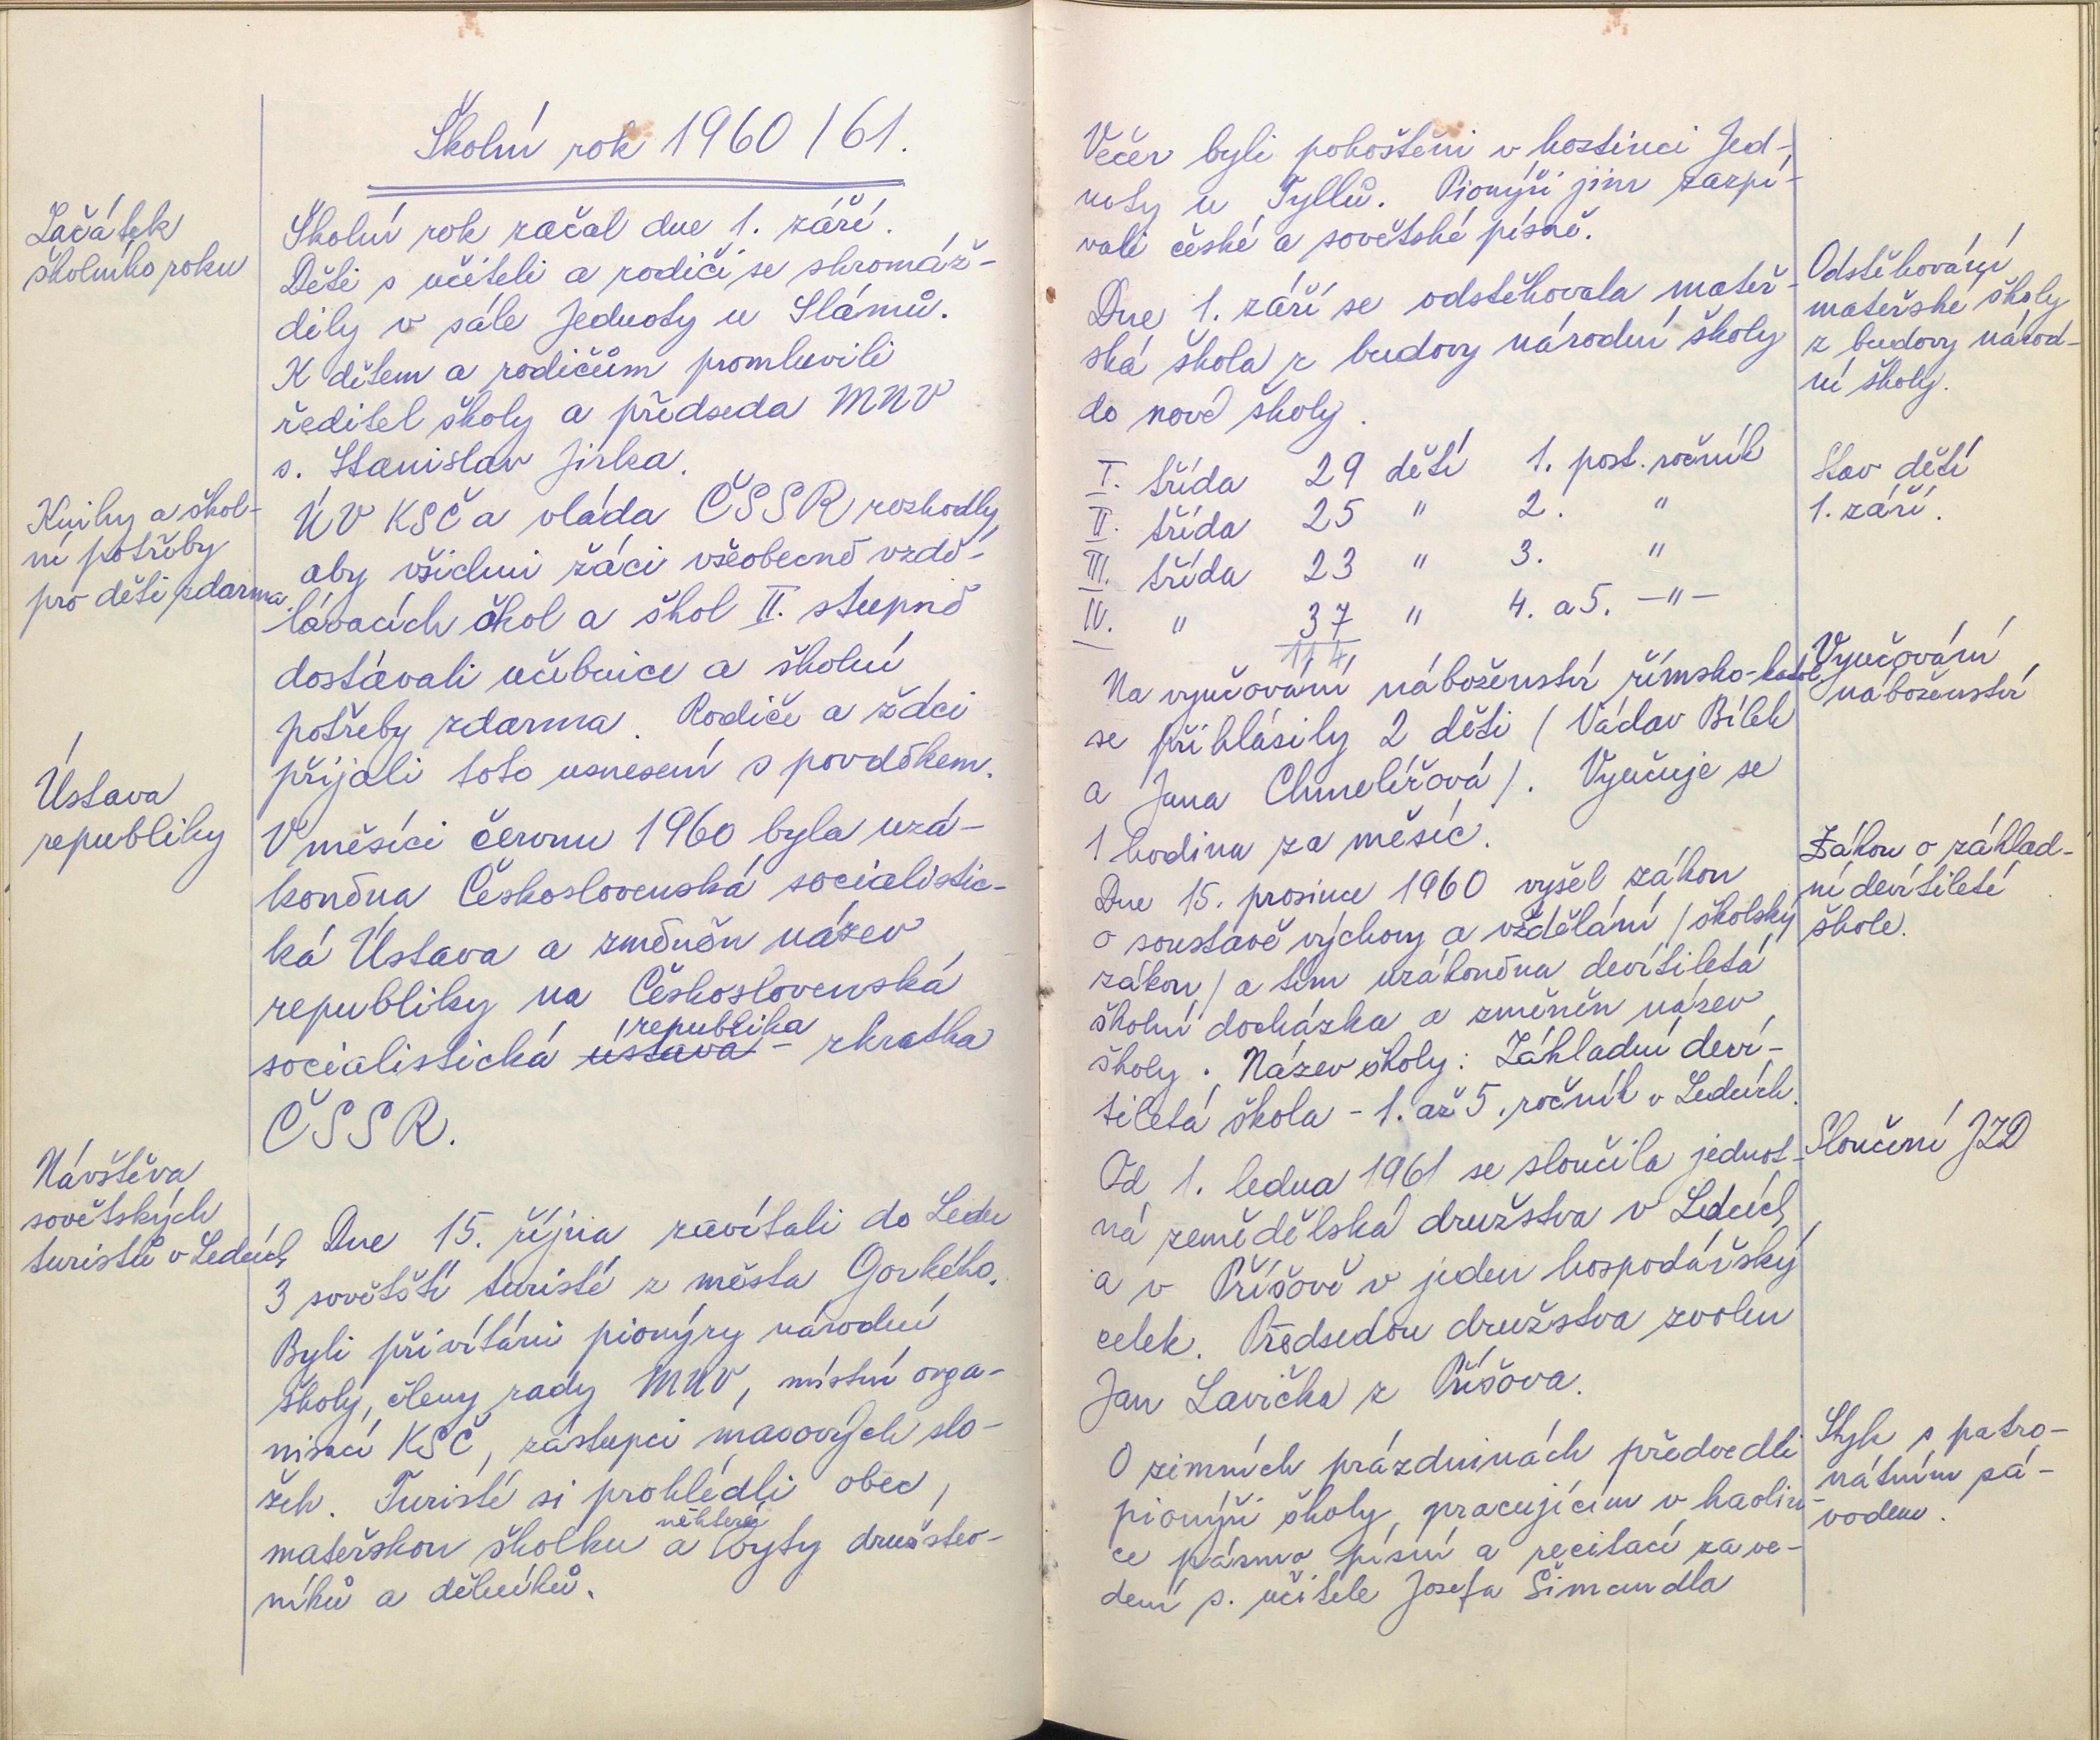 Školní rok 1960/61.
Začátek
školního roku
Školní rok začal dne 1. září.
Děti s učiteli a rodiči se shromáž-
dily v sále Jednoty u Slámů.
K dětem a rodičům promluvili
ředitel školy a předseda MNV
s. Stanislav Jirka.
Knihy a škol-
ní potřeby
pro děti zdarma.
ÚV KSČ a vláda ČSSR rozhodly,
aby všichni žáci všeobecně vzdě-
lávacích škol a škol II. stupně
dostávali učebnice a školní
potřeby zdarma. Rodiče a žáci
přijali toto usnesení s povděkem.
Ústava
republiky
V měsíci červnu 1960 byla uzá-
koněna Československá socialistic-
ká Ústava a změněn název
republiky na Československá
socialistická ústava republika – zkratka
ČSSR.
Návštěva
sovětských
turistů v Ledcích
Dne 15. října zavítali do Ledec
3 sovětští turisté z města Gorkého.
Byli přivítáni pionýry národní
školy, členy rady MNV, místní orga-
nisací KSČ, zástupci masových slo-
žek. Turisté si prohlédli obec,
mateřskou školku a některé byty družstev-
níků a dělníků.
Večer byli pohoštěni v hostinci Jed-
noty u Tyllů. Pionýři jim zazpí-
vali české a sovětské písně.
Dne 1. září se odstěhovala mateř-
ská škola z budovy národní školy
do nové školy.
Odstěhování
mateřské školy
z budovy národ-
ní školy.
I. třída 29 dětí 1. post. ročník
II. třída 25 " 2. "
III. třída 23 " 3. "
IV. " 37 " 4. a 5. –"–
114
Stav dětí
1. září.
Na vyučování náboženství římsko-katol.
se přihlásily 2 děti (Václav Bílek
a Jana Chmelířová). Vyučuje se
1 hodinu za měsíc.
Vyučování
náboženství
Dne 15. prosince 1960 vyšel zákon
o soustavě výchovy a vzdělání (školský
zákon) a tím uzákoněna devítiletá
školní docházka a změněn název
školy. Název školy: Základní deví-
tiletá škola – 1. až 5. ročník v Ledcích.
Zákon o základ-
ní devítileté
škole.
Od 1. ledna 1961 se sloučila jednot-
ná zemědělská družstva v Ledcích
a v Příšově v jeden hospodářský
celek. Předsedou družstva zvolen
Jan Lavička z Příšova.
Sloučení JZD
O zimních prázdninách předvedli
pionýři školy, pracujícím v kaolin-
ce pásmo písní a recitací za ve-
dení s. učitele Josefa Šimandla
Styk s patro-
nátním zá-
vodem.